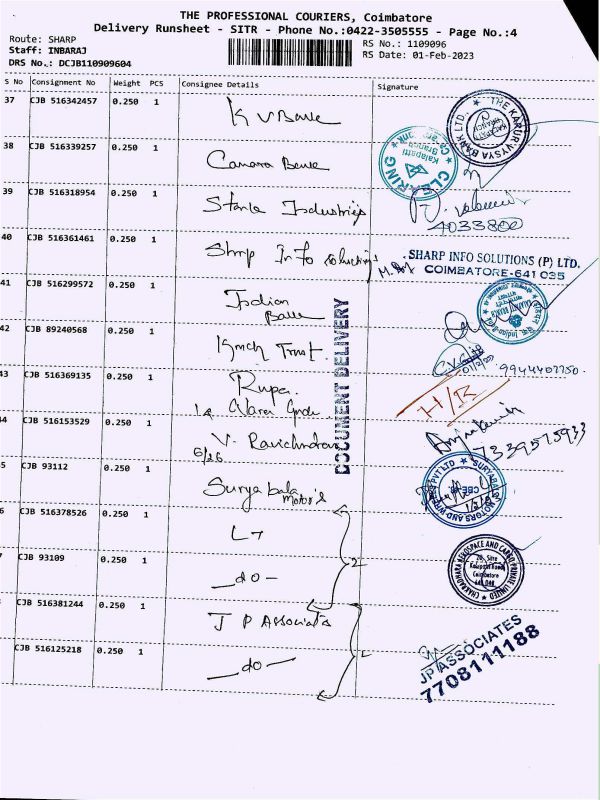 THE PROFESSIONAL COURIERS, Coimbatore
Delivery Runsheet - SITR - Phone No.:0422-3505555 - Page No.:4
Route: SHARP
Staff: INBARAJ
DRS No.: DCJB110909604
RS No.: 1109096
RS Date: 01-Feb-2023
S No Consignment No Weight PCS Consignee Details Signature
37 CJB 516342457 0.250 1 K V Bank
THE KARUR VYSYA BANK LTD.
38 CJB 516339257 0.250 1 Canara Bank
CLEARING
Kalapatti Branch
39 CJB 516318954 0.250 1 Industries
4033800
40 CJB 516361461 0.250 1 Shrp Info Solutions
SHARP INFO SOLUTIONS (P) LTD.
COIMBATORE-641 035
41 CJB 516299572 0.250 1 Indian Bank
42 CJB 89240568 0.250 1 Trust
9944402250
DOCUMENT DELIVERY
43 CJB 516369135 0.250 1 Rupa
H/R
44 CJB 516153529 0.250 1 V. Ravichndran
6/26
7339575933
5 CJB 93112 0.250 1 Surya bala Motors
SURYABALA MOTORS AND PVT LTD
CBE
6 CJB 516378526 0.250 1 L7
2
7 CJB 93109 0.250 1 — do —
CHAKRADHARA AEROSPACE AND CARGO PRIVATE LIMITED
Coimbatore
CJB 516381244 0.250 1 J P Associats
CJB 516125218 0.250 1 — do —
JP ASSOCIATES
7708111188